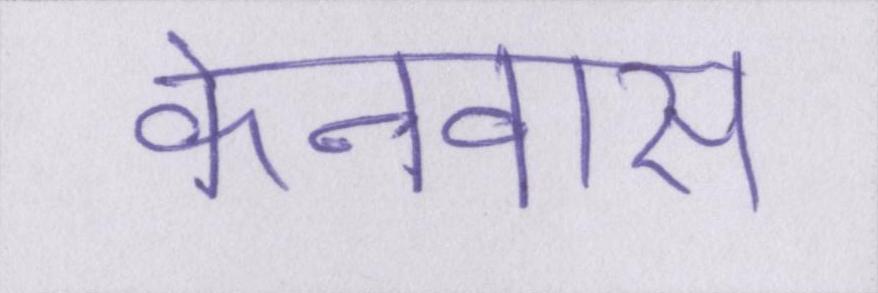 केनवास